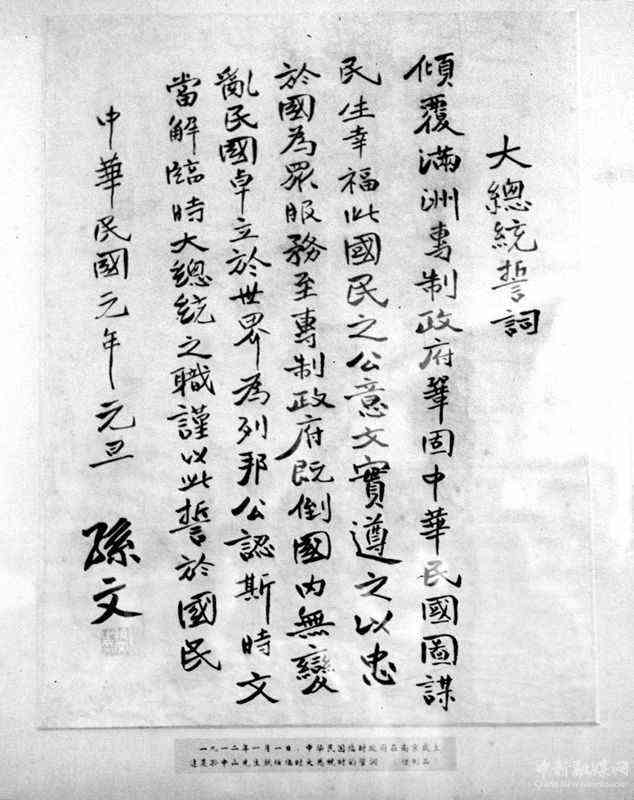 大總統誓詞
傾覆滿洲專制政府鞏固中華民國圖謀
民生幸福此國民之公意文實遵之以忠
於國為眾服務至專制政府既倒國內無變
亂民國卓立於世界為列邦公認斯時文
當解臨時大總統之職謹以此誓於國民
中華民國元年元旦
孫文
一九一二年一月一日，中华民国临时政府在南京成立
这是孙中山先生就任临时大总统时的誓词（复制品）
中新融媒网